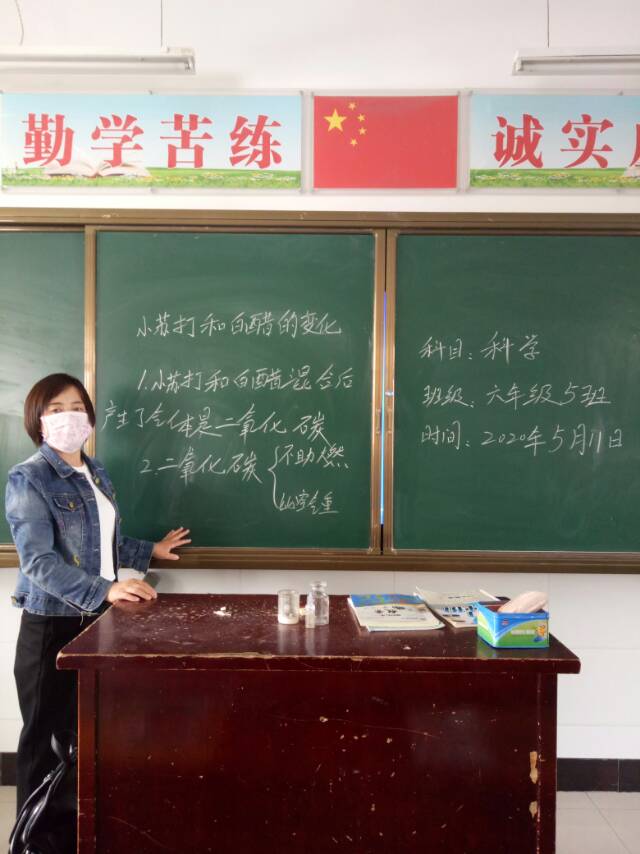 勤学苦练
诚实
小苏打和白醋的变化
1.小苏打和白醋混合后
产生了气体是二氧化碳
2.二氧化碳
不助燃
比空气重
科目：科学
班级：六年级5班
时间：2020年5月11日